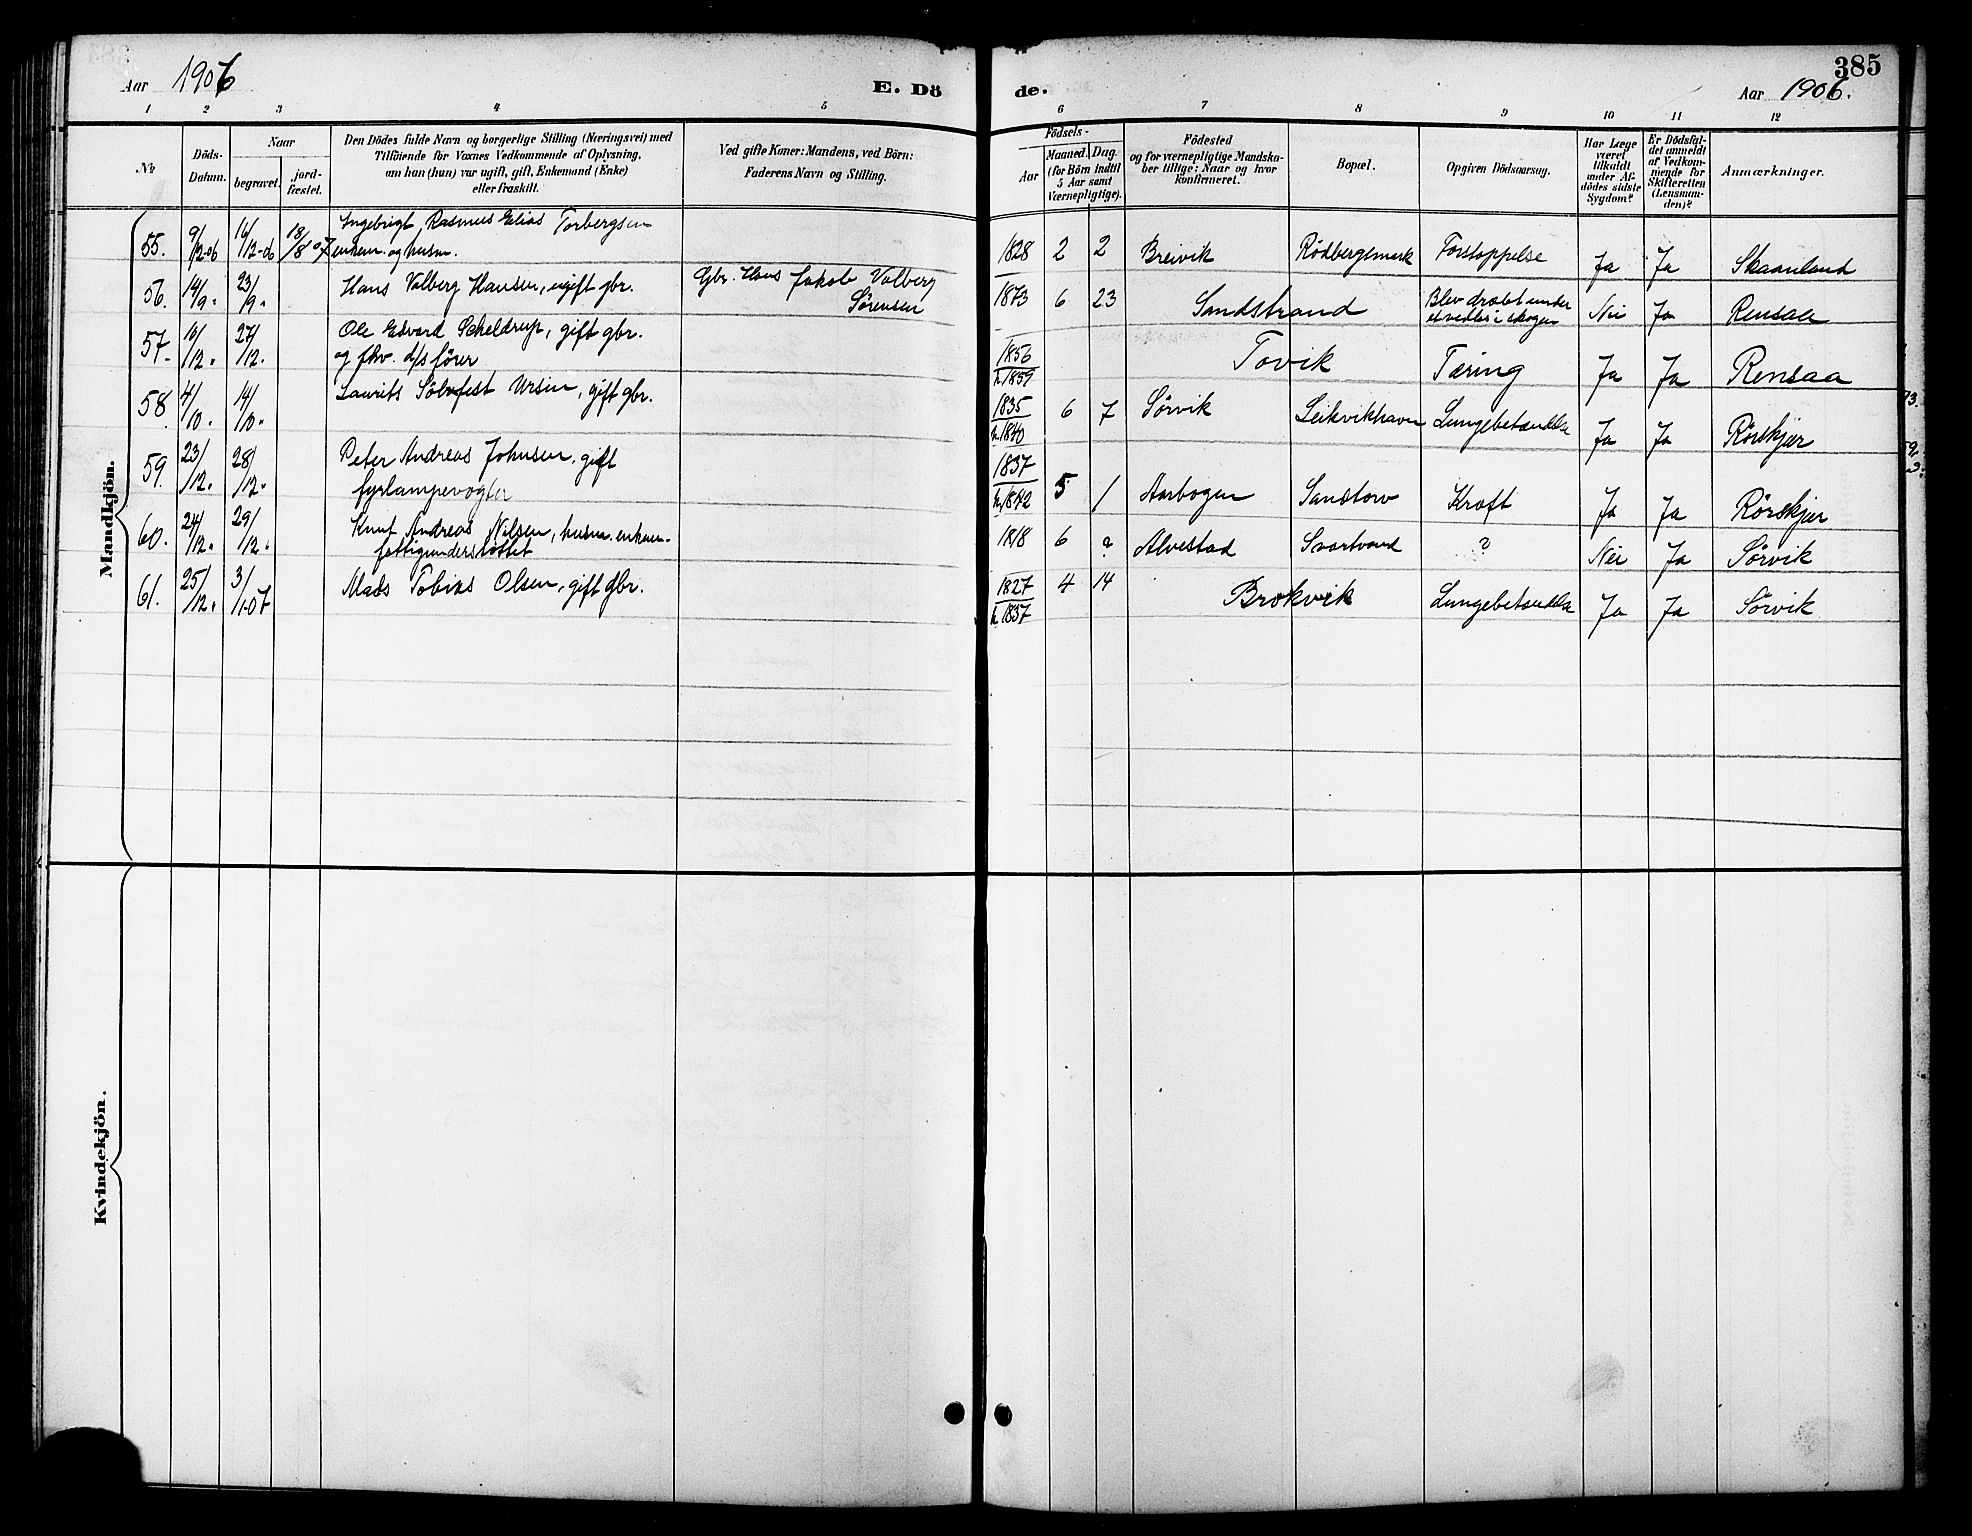 385
Aar 1906
E. Dö
de.
Aar 1906.
1 2 3 4 5 6 7 8 9 10 11 12
No.
Döds-
Datum.
Naar
begravet.
jord-
fæstet.
Den Dödes fulde Navn og borgerlige Stilling (Næringsvei) med
Tilföiende for Voxnes Vedkommende af Oplysning,
om han (hun) var ugift, gift, Enkemand (Enke)
eller fraskilt.
Ved gifte Koner: Mandens, ved Börn:
Faderens Navn og Stilling.
Födsels-
Aar
Maaned. Dag.
(for Börn indtil
5 Aar samt
Værnepligtige).
Födested
og for værnepligtige Mandska-
ber tillige: Naar og hvor
konfirmeret.
Bopæl.
Opgiven Dödsaarsag.
Har Læge
været
tilkaldt
under Af-
dödes sidste
Sygdom?
Er Dödsfal-
det anmeldt
af Vedkom-
mende for
Skifteretten
(Lensman-
den)?
Anmærkninger.
Mandkjön.
55. 9/12-06 16/12-06 18/8 07 Ingebrigt, Rasmus Elias Torbergsen
enkem. og husm.
1828 2 2 Breivik Rødbergsmark Forstoppelse Ja Ja Skaanland
56. 14/9 " 23/9 " Hans Valberg Hansen, ugift gbr. Gbr. Hans Jakob Valberg
Sørensen
1873 6 23 Sandstrand Blev dræbt under
i skogen Nei Ja Rensaa
57. 10/12 " 27/12 " Ole Edvard Scheldrup, gift gbr.
og fhv. d/s fører
1856
h. 1859 Tovik Tæring Ja Ja Rensaa
58. 4/10 " 14/10 " Laurits Sölvfest Ursin, gift gbr.
1835
h. 1840 6 7 Sørvik Leikvikhavn Lungebetændelse Ja Ja Rørskjær
59. 23/12 " 28/12 " Peter Andreas Johnsen, gift
fyrlampevogter
1837
h. 1842 5 1 Aarbogen Sandtorv Kræft Ja Ja Rørskjær
60. 24/12 " 29/12 " Knut Andreas Nilsen, husm. enkem.
fattigunderstöttet
1818 6 ? Alvestad Svartvand ? Nei Ja Sørvik
61. 25/12 " 3/1-07 Mads Tobias Olsen, gift gbr.
1827
h. 1837 4 14 Brokvik Lungebetændelse Ja Ja Sørvik
Kvindekjön.